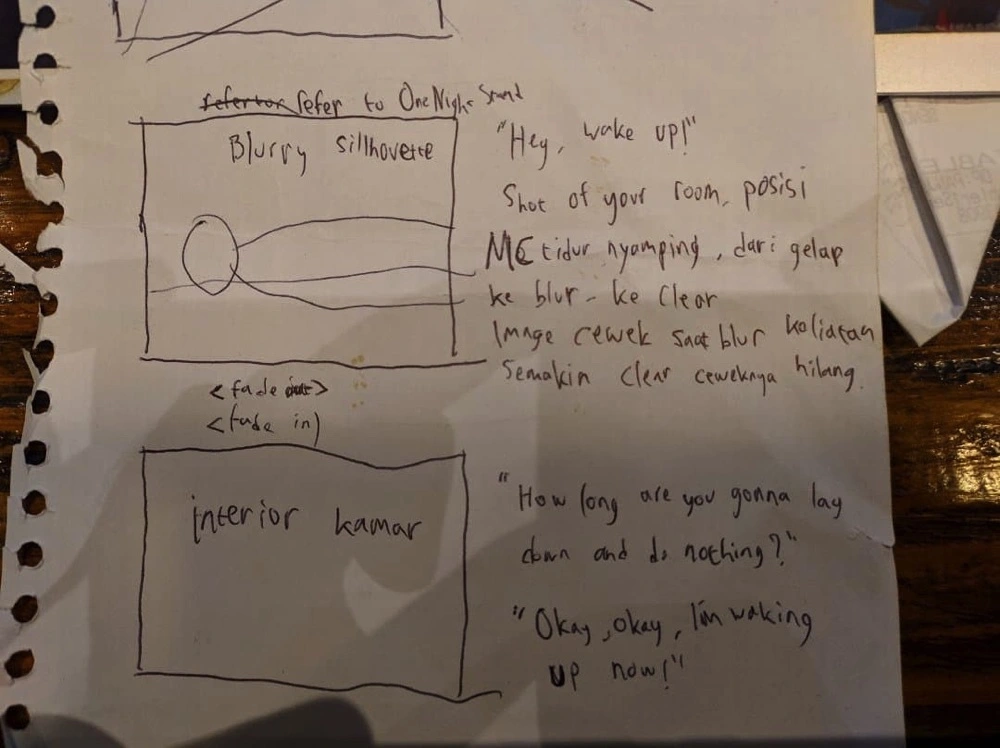 refer to OneNight Stand
Blurry sillhouette
"Hey, wake up!"
Shot of your room, posisi
MC tidur nyamping, dari gelap
ke blur - ke clear
Image cewek saat blur keliatan
semakin clear ceweknya hilang.
<fade out>
<fade in)
interior kamar
"How long are you gonna lay
down and do nothing?"
"Okay, okay, I'm waking
up now!"